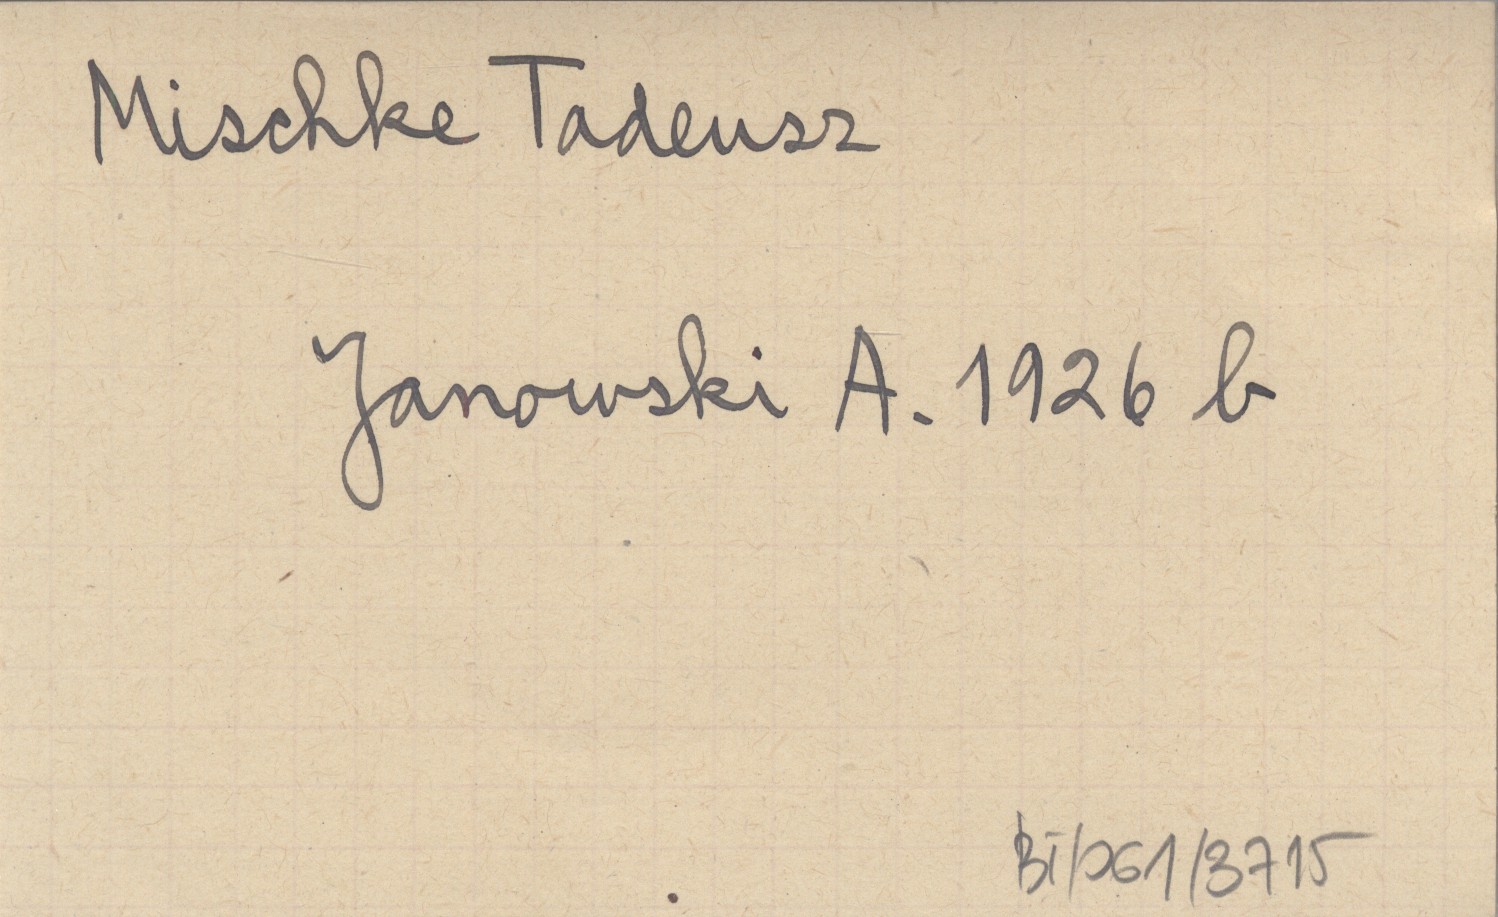 Mischke Tadeusz
Janowski A. 1926 b
BI/061/3715